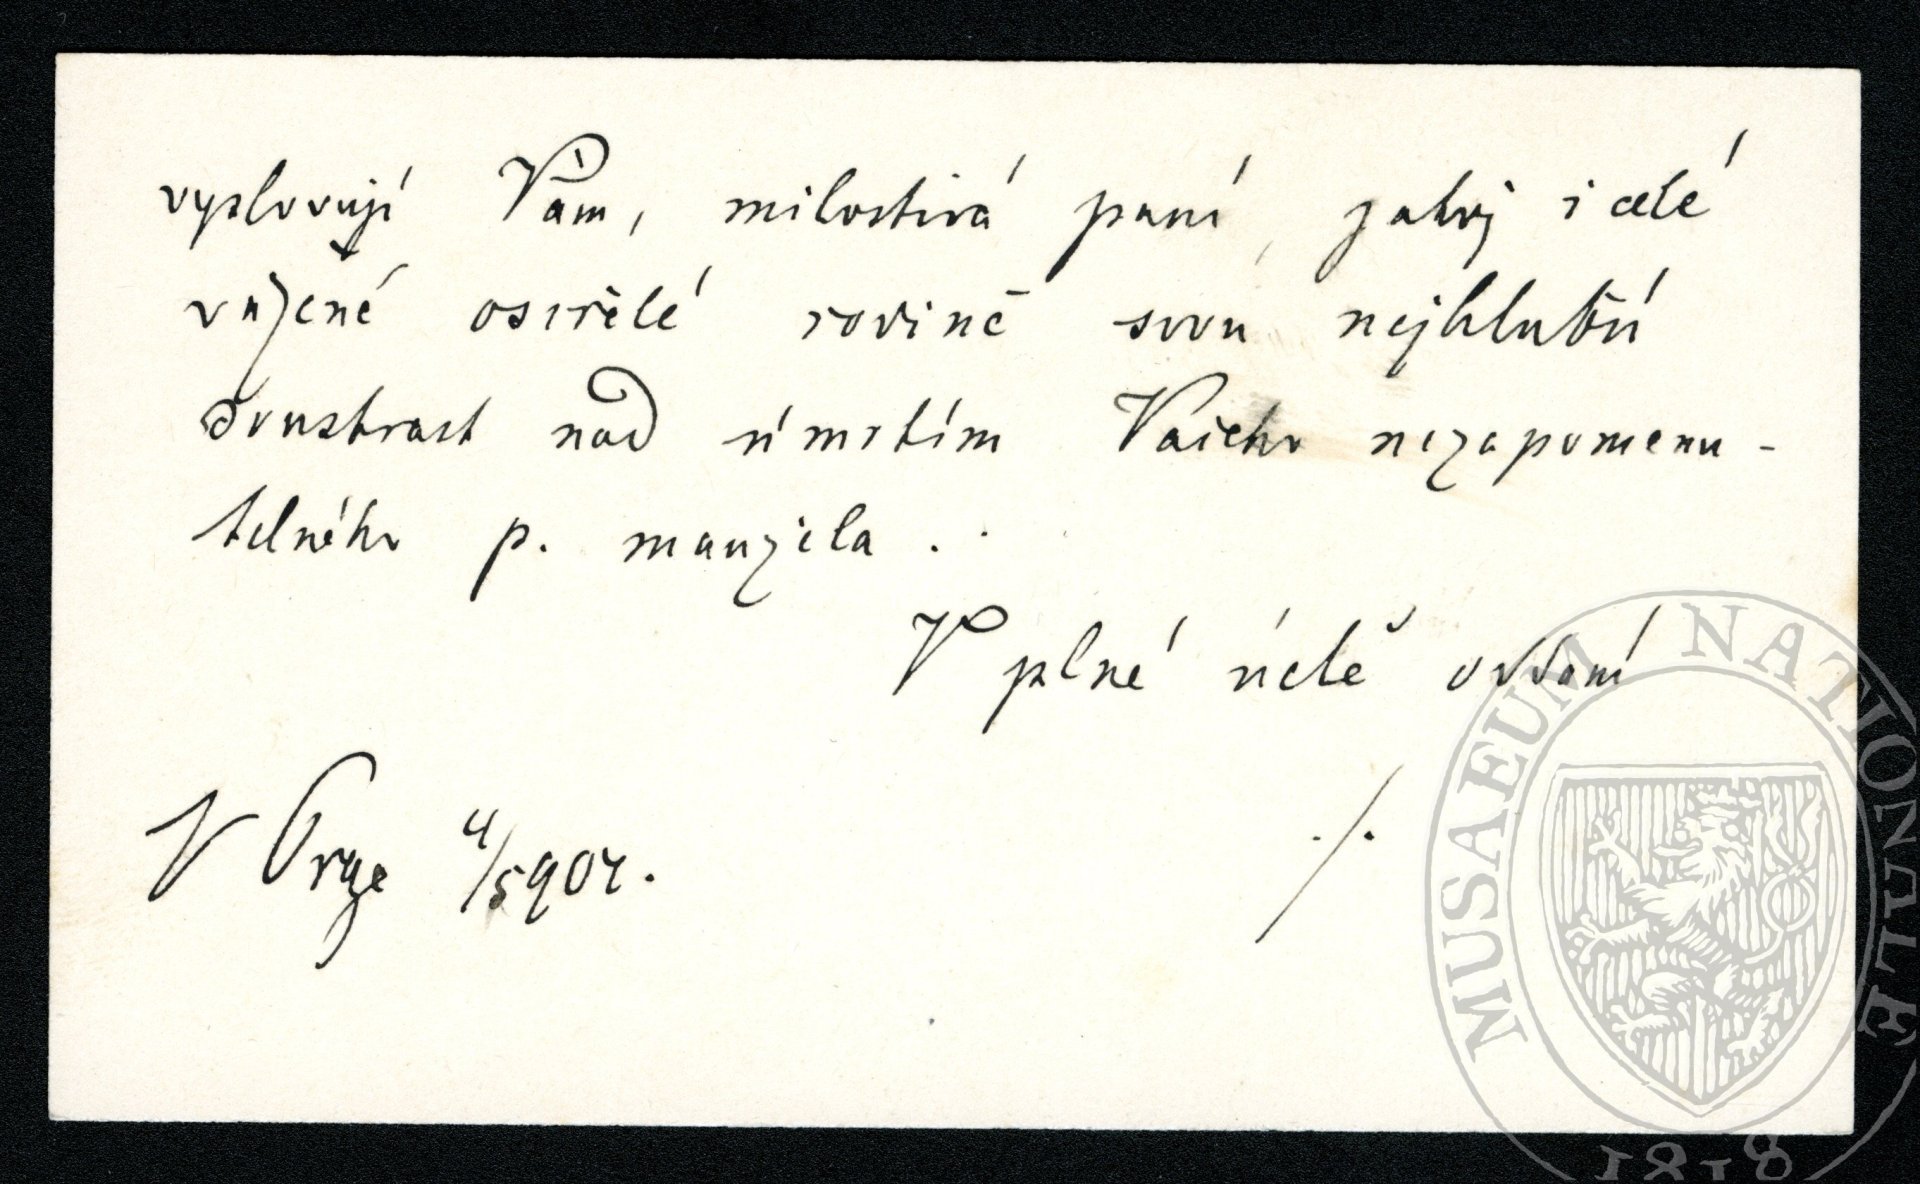 vyslovují Vám, milostivá paní, jakož i celé
vážené osiřelé rodině svou nejhlubší
soustrast nad úmrtím Vašeho nezapomenu-
telného p. manžela.
V plné úctě oddaní
V Praze 4/5 904.
./.
MUSAEUM NATIONALE
1818